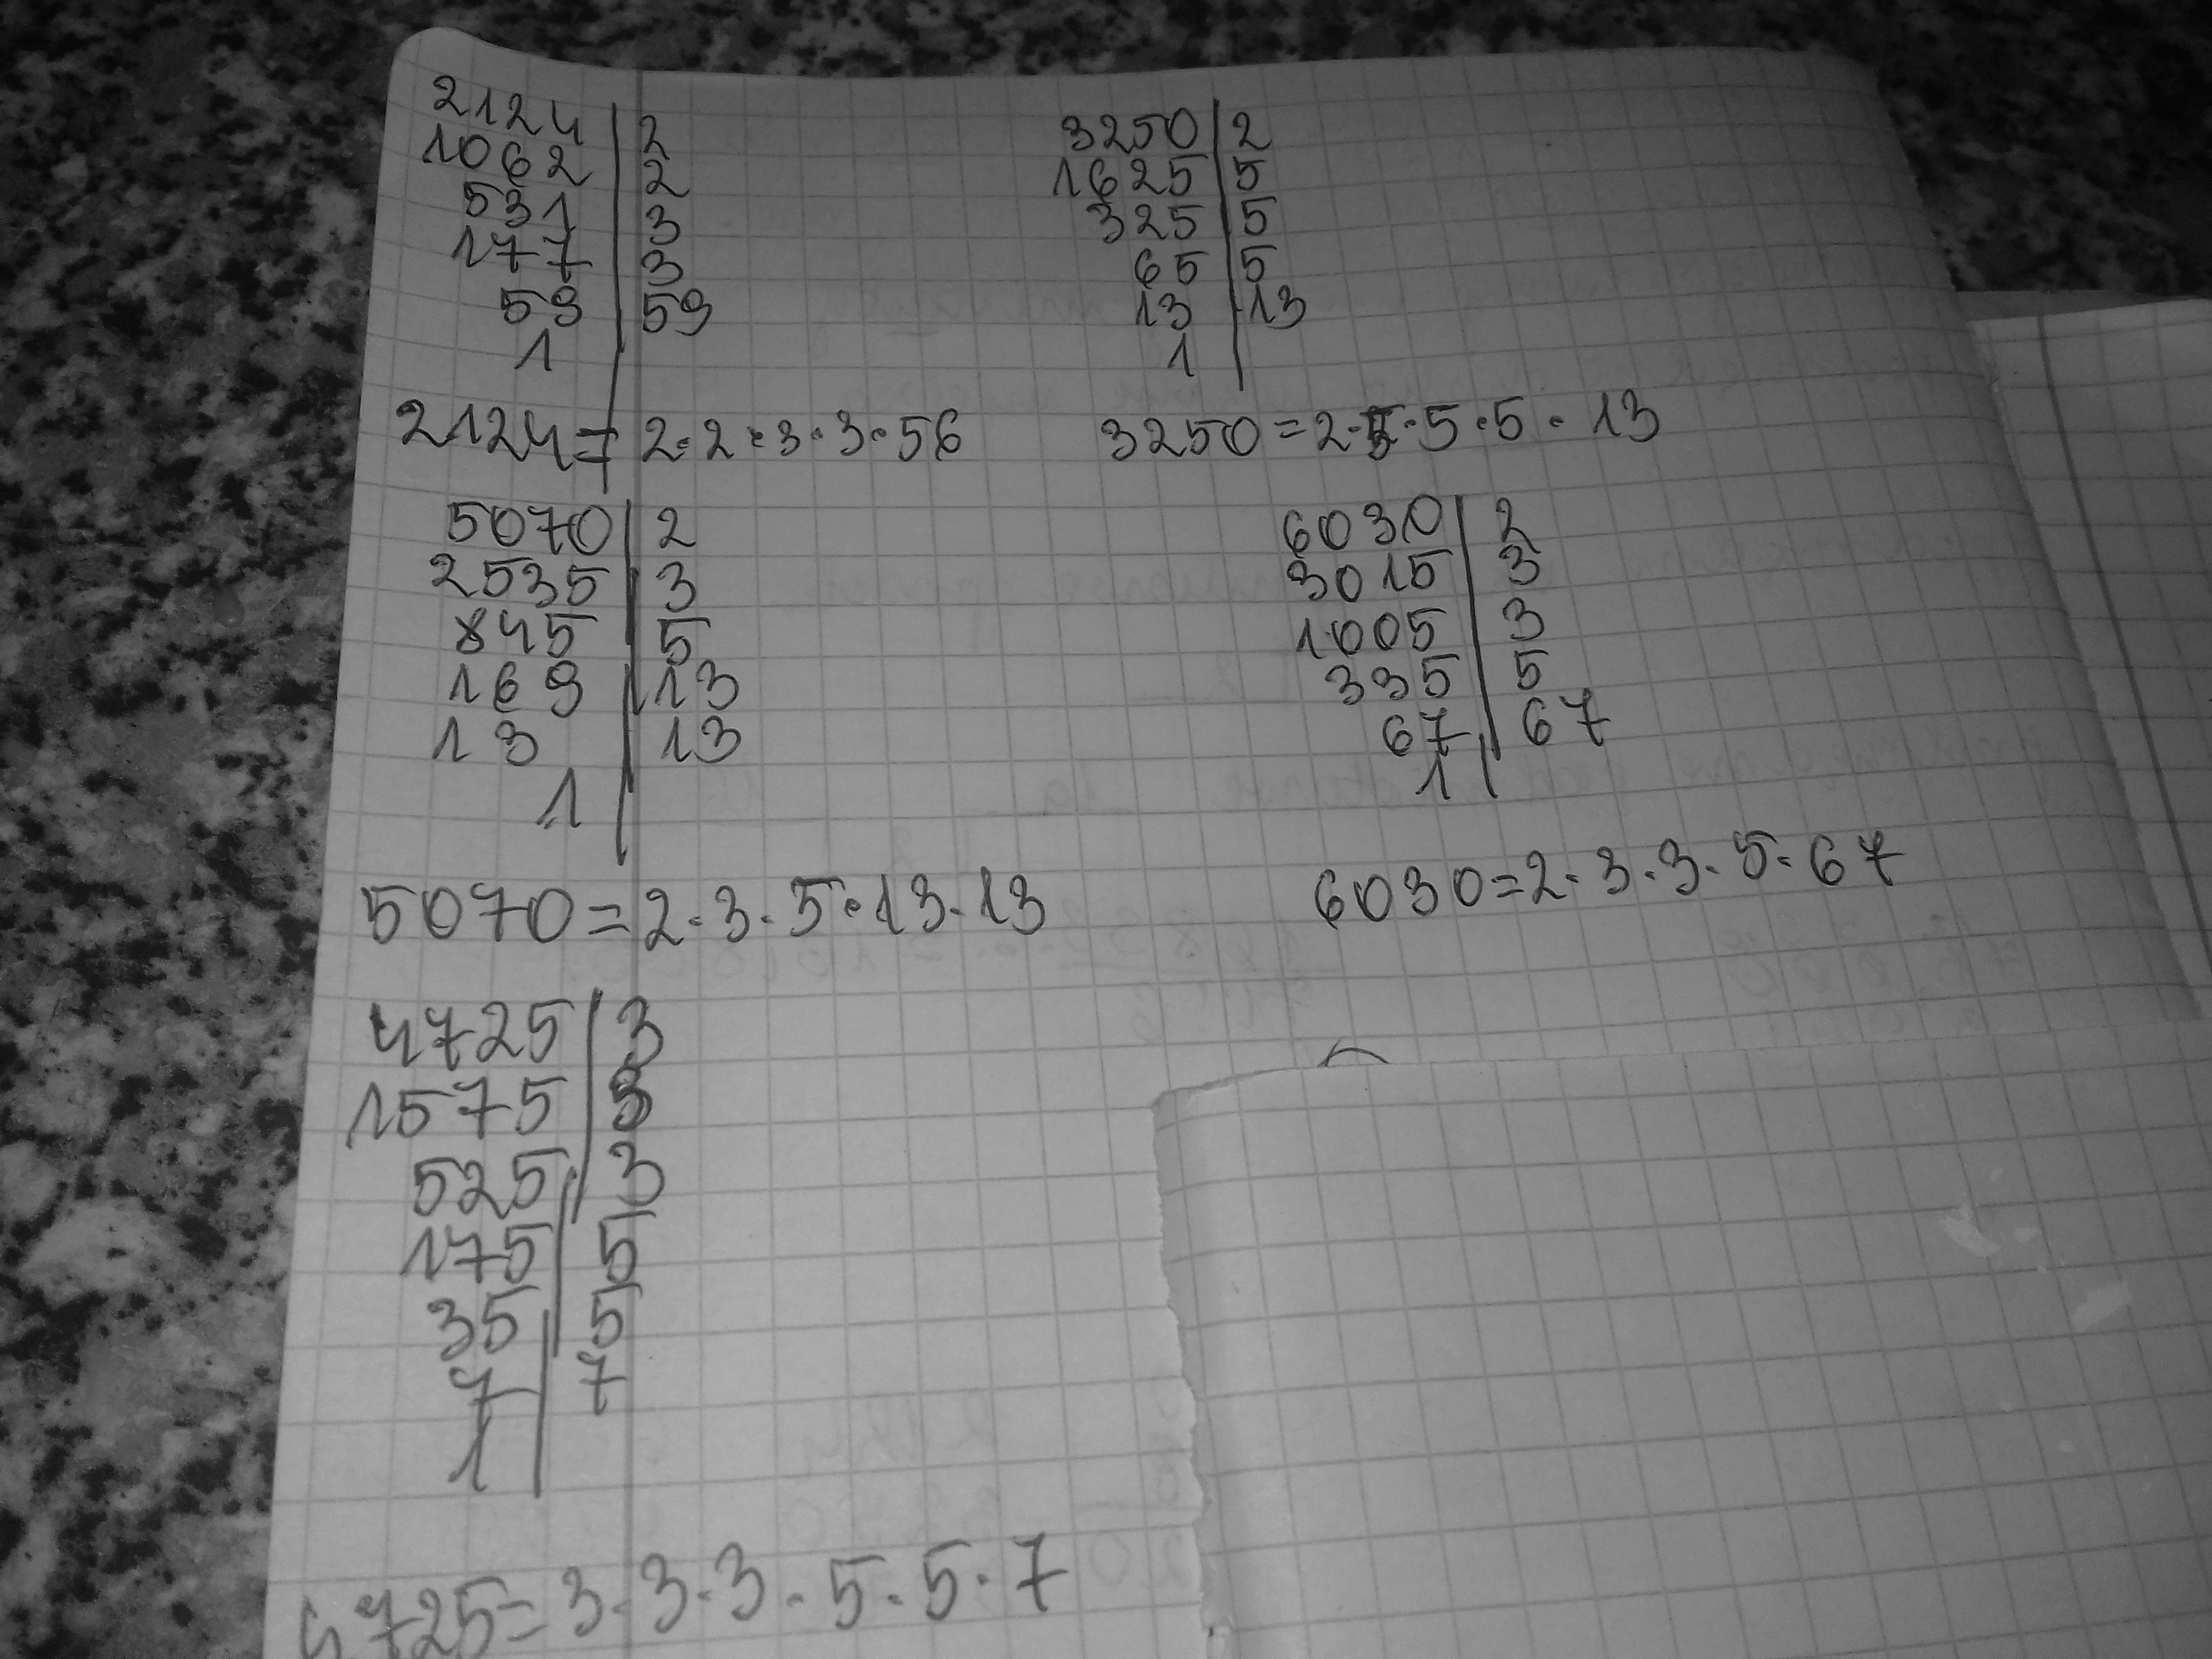 2124 | 2
1062 | 2
531 | 3
177 | 3
59 | 59
1 |
2124 = 2·2·3·3·56
3250 | 2
1625 | 5
325 | 5
65 | 5
13 | 13
1 |
3250 = 2·5·5·5·13
5070 | 2
2535 | 3
845 | 5
169 | 13
13 | 13
1 |
5070 = 2·3·5·13·13
6030 | 2
3015 | 3
1005 | 3
335 | 5
67 | 67
1 |
6030 = 2·3·3·5·67
4725 | 3
1575 | 3
525 | 3
175 | 5
35 | 5
7 | 7
1 |
4725 = 3·3·3·5·5·7